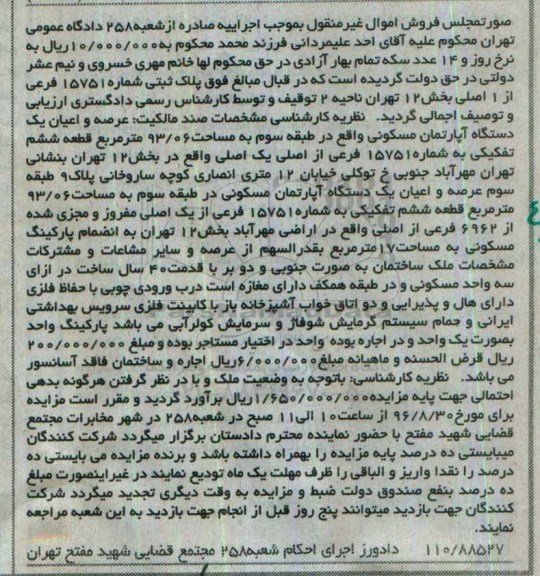 صورتمجلس فروش اموال غیرمنقول بموجب اجراییه صادره ازشعبه۲۵۸ دادگاه عمومی
تهران محکوم علیه آقای احد علیمردانی فرزند محمد محکوم به۱۰/۰۰۰/۰۰۰ریال به
نرخ روز و ۱۴ عدد سکه تمام بهار آزادی در حق محکوم لها خانم مهری خسروی و نیم عشر
دولتی در حق دولت گردیده است که در قبال مبالغ فوق پلاک ثبتی شماره۱۵۷۵۱ فرعی
از ۱ اصلی بخش۱۲ تهران ناحیه ۲ توقیف و توسط کارشناس رسمی دادگستری ارزیابی
و توصیف اجمالی گردید. نظریه کارشناسی مشخصات صند مالکیت: عرصه و اعیان یک
دستگاه آپارتمان مسکونی واقع در طبقه سوم به مساحت۹۳/۰۶ مترمربع قطعه ششم
تفکیکی به شماره۱۵۷۵۱ فرعی از اصلی یک اصلی واقع در بخش۱۲ تهران بنشانی
تهران مهرآباد جنوبی خ توکلی خیابان ۱۲ متری انصاری کوچه ساروخانی پلاک۹ طبقه
سوم عرصه و اعیان یک دستگاه آپارتمان مسکونی در طبقه سوم به مساحت۹۳/۰۶
مترمربع قطعه ششم تفکیکی به شماره۱۵۷۵۱ فرعی از یک اصلی مفروز و مجزی شده
از ۶۹۶۲ فرعی از اصلی واقع در اراضی مهرآباد بخش۱۲ تهران به انضمام پارکینگ
مسکونی به مساحت۱۷مترمربع بقدرالسهم از عرصه و سایر مشاعات و مشترکات
مشخصات ملک ساختمان به صورت جنوبی و دو بر با قدمت۴۰ سال ساخت در ازای
سه واحد مسکونی و در طبقه همکف دارای مغازه است درب ورودی چوبی با حفاظ فلزی
دارای هال و پذیرایی و دو اتاق خواب آشپزخانه باز با کابینت فلزی سرویس بهداشتی
ایرانی و حمام سیستم گرمایش شوفاژ و سرمایش کولرآبی می باشد پارکینگ واحد
بصورت یک واحد و در اجاره بوده واحد در اختیار مستاجر بوده و مبلغ ۲۰۰/۰۰۰/۰۰۰
ریال قرض الحسنه و ماهیانه مبلغ۶/۰۰۰/۰۰۰ریال اجاره و ساختمان فاقد آسانسور
می باشد. نظریه کارشناسی: باتوجه به وضعیت ملک و با در نظر گرفتن هرگونه بدهی
احتمالی جهت پایه مزایده۱/۶۵۰/۰۰۰/۰۰۰ریال برآورد گردید و مقرر است مزایده
برای مورخ۹۶/۸/۳۰ از ساعت۱۰ الی۱۱ صبح در شعبه۲۵۸ در شهر مخابرات مجتمع
قضایی شهید مفتح با حضور نماینده محترم دادستان برگزار میگردد شرکت کنندگان
میبایستی ده درصد پایه مزایده را بهمراه داشته باشد و برنده مزایده می بایستی ده
درصد را نقدا واریز و الباقی را ظرف مهلت یک ماه تودیع نمایند در غیراینصورت مبلغ
ده درصد بنفع صندوق دولت ضبط و مزایده به وقت دیگری تجدید میگردد شرکت
کنندگان جهت بازدید میتوانند پنج روز قبل از انجام جهت بازدید به این شعبه مراجعه
نمایند.
۱۱۰/۸۸۵۲۷ دادورز اجرای احکام شعبه۲۵۸ مجتمع قضایی شهید مفتح تهران